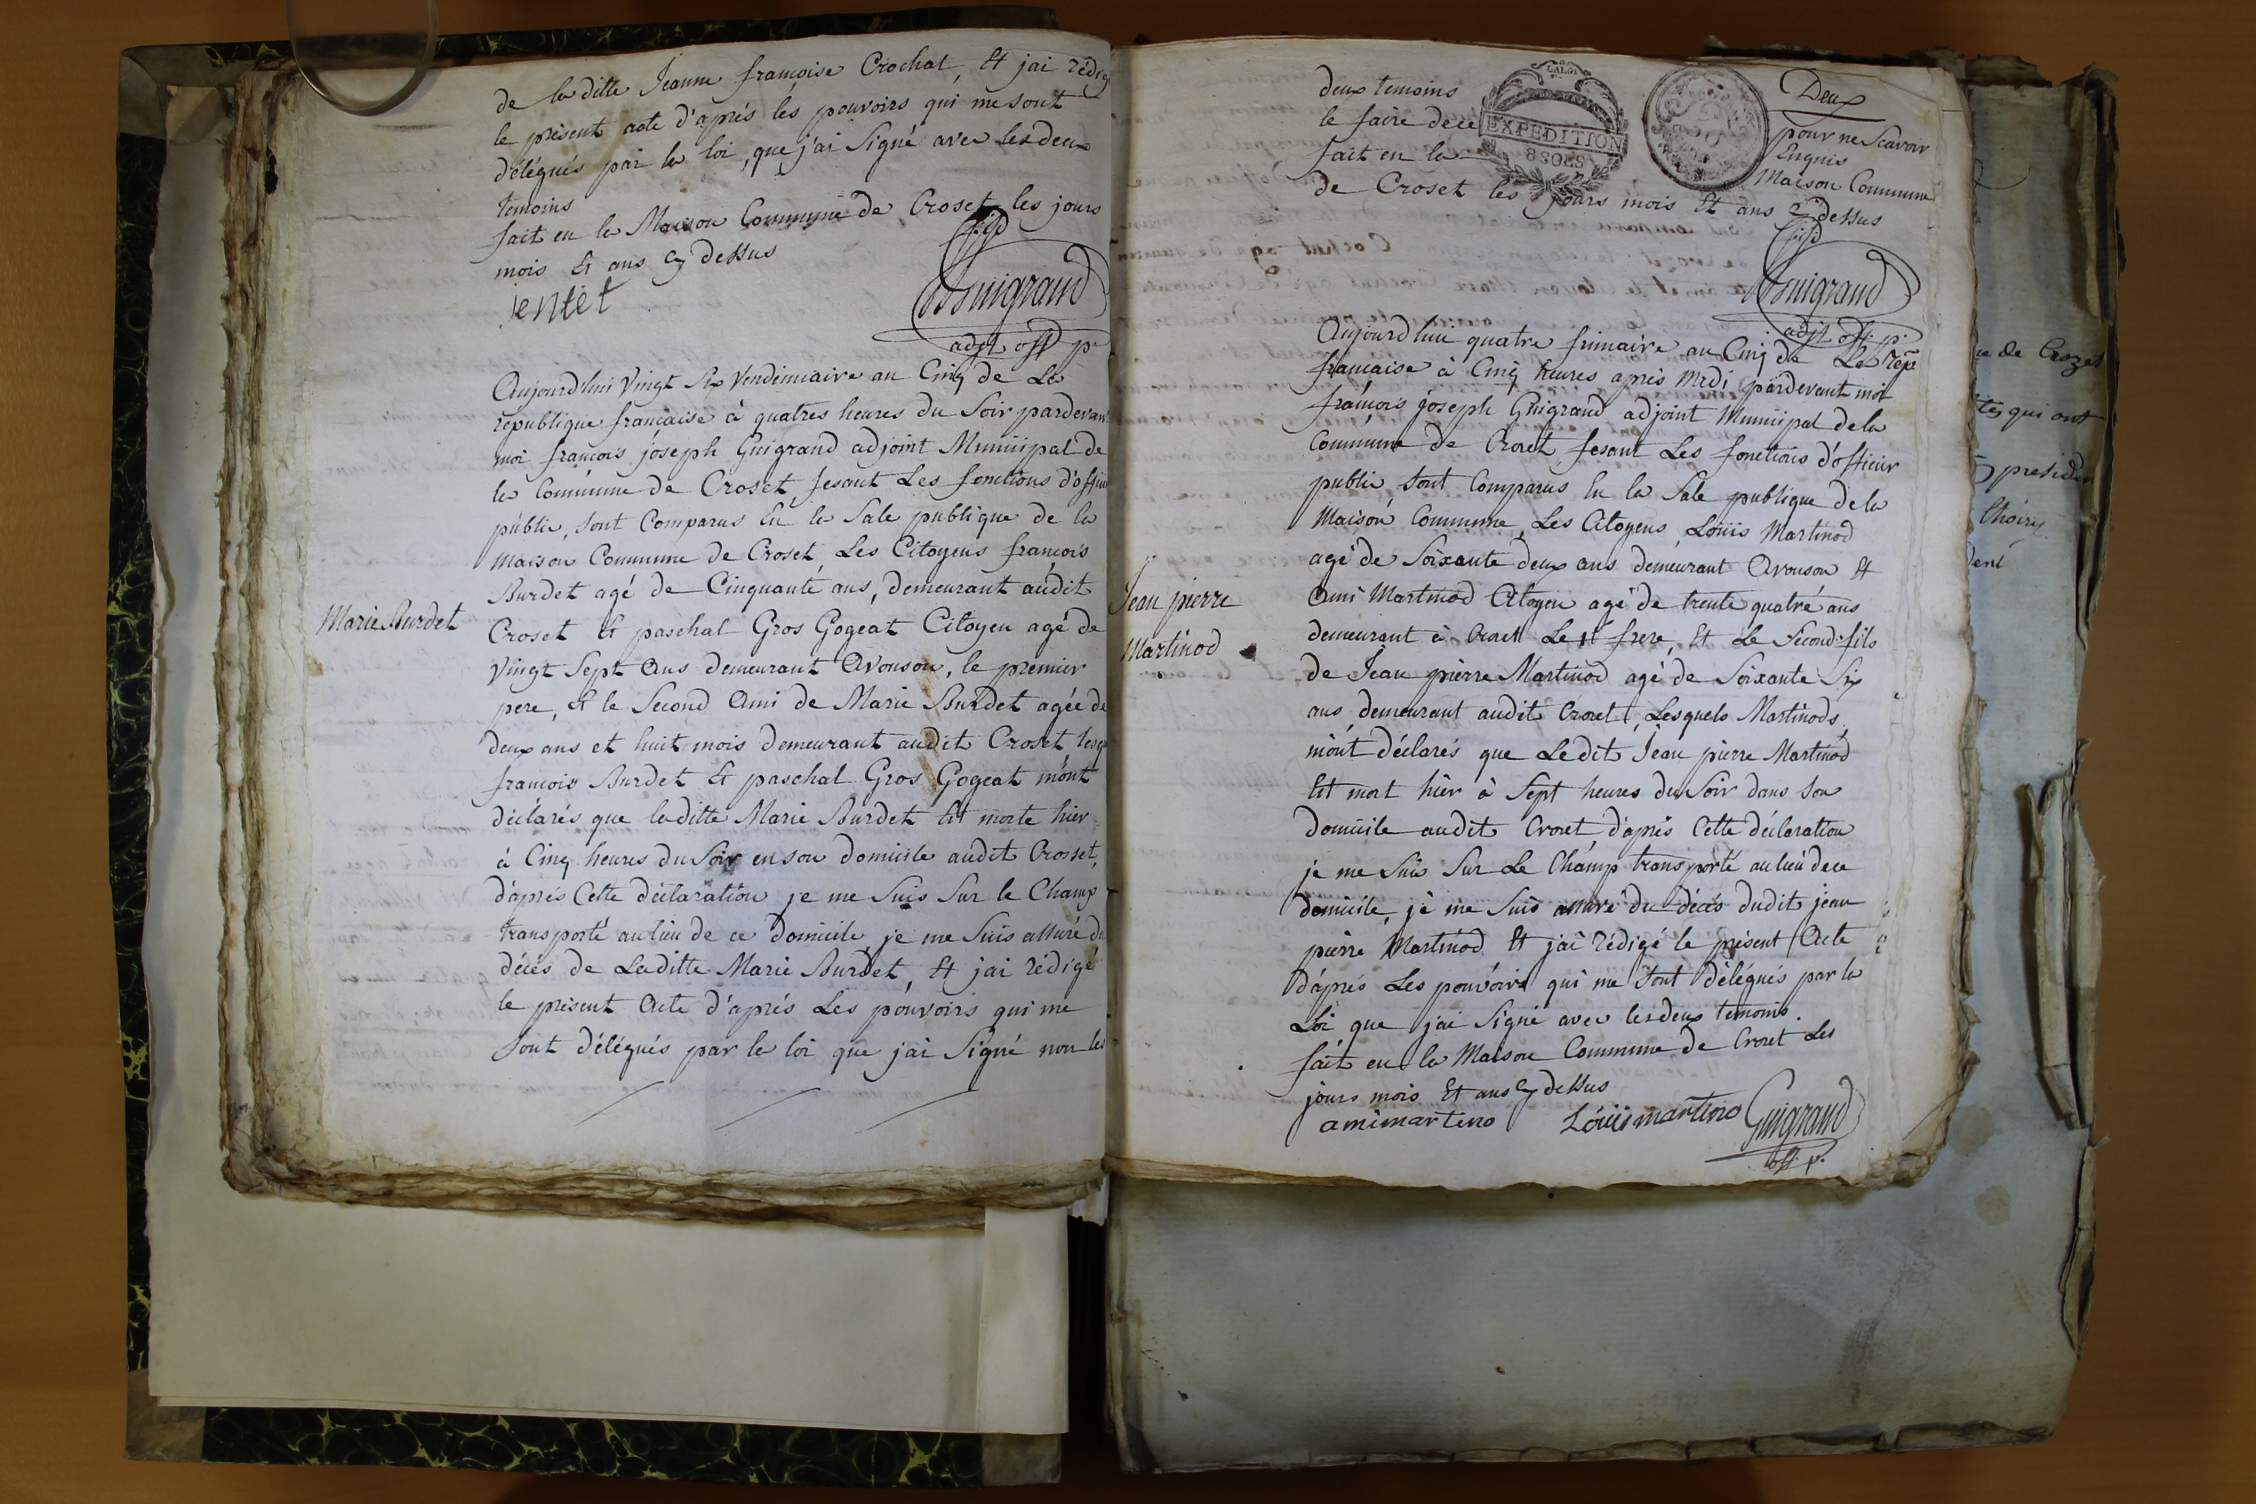 de la ditte Jeanne françoise Crochat, Et jai rédigé
le présent acte d'aprés les pouvoirs qui me sont
délégués par la loi, que j'ai Signé avec les deux
temoins
fait en la Maison Commune de Croset les jours
mois Et ans cy dessus
jentet
Guigrand
adjt off p.
Aujourd'hui Vingt Six Vendemiaire an Cinq de La
république francaise à quatres heures du Soir pardevant
moi françois jóseph Guigrand adjoint Municipal de
la Commune de Croset, fesant Les fonctions d'offici
públic, sont Comparus En la Sale publique de la
Maison Commune de Croset, Les Citoyens françois
Burdet agé de Cinquante ans, demeurant audit
Marie Burdet
Croset Et paschal Gros Gogeat Citoyen agé de
Vingt Sept Ans demeurant Avouson, le premier
pere, Et le Second Ami de Marie Burdet agée de
deux ans et huit mois demeurant audit Croset lesq
françois Burdet Et paschal Gros Gogeat m'ont
déclarés que laditte Marie Burdet Est morte hier
à Cinq heures du Soir en son domicile audit Crosset,
d'aprés Cette déclaration je me Suis Sur le Champ
transporté au lieu de ce domicile, je me Suis assuré du
décés de Laditte Marie Burdet, Et jai rédigé
le présent Acte d'aprés Les póuvoirs qui me
sont délégués par la loi que j'ai Signé non les
deux temoins
Deux
pour ne Scavoir
le faire de ce
Enquis
EXPEDITION
8 SOLS
fait en la
Maison Commune
de Croset les jours mois Et ans cy dessus
Guigrand
adjt off. p.
Aujourd'hui quatre frimaire an Cinq de La rép.
francaise à Cinq heures aprés Midi pardevant moi
françois jóseph Guigrand adjoint Municipal de la
Commune de Crozet, fesant Les fonctions d'officier
public, sont Comparus En la Sale publique de la
Maison Commune, Les Citoyens, Loüis Martinod
agé de Soixante deux ans demeurant Avouson Et
Jean pierre
Martinod
Ami Martinod Citoyen agé de trente quatre ans
demeurant à Crozet Le 1er frere, Et Le Second fils
de Jean pierre Martinod agé de Soixante Six
ans demeurant audit Crozet, Lesquels Martinods,
m'ont déclarés que Ledit Jean pierre Martinod
Est mort hier à Sept heures du Soir dans Son
domicile audit Crozet d'aprés Cette déclaration
je me Suis Sur Le Champ transporté au lieu de ce
domicile, je me Suis assuré du décés dudit jean
pierre Martinod Et j'ai rédigé le présent Acte
d'aprés Les pouvoirs qui me sont délégués par la
Loi que j'ai Signé avec les deux temoins.
fait en la Maison Commune de Crozet Les
jours mois Et ans cy dessus
amimartino Loüis martino Guigrand
off. p.
de Crozet
qui ont
presiden